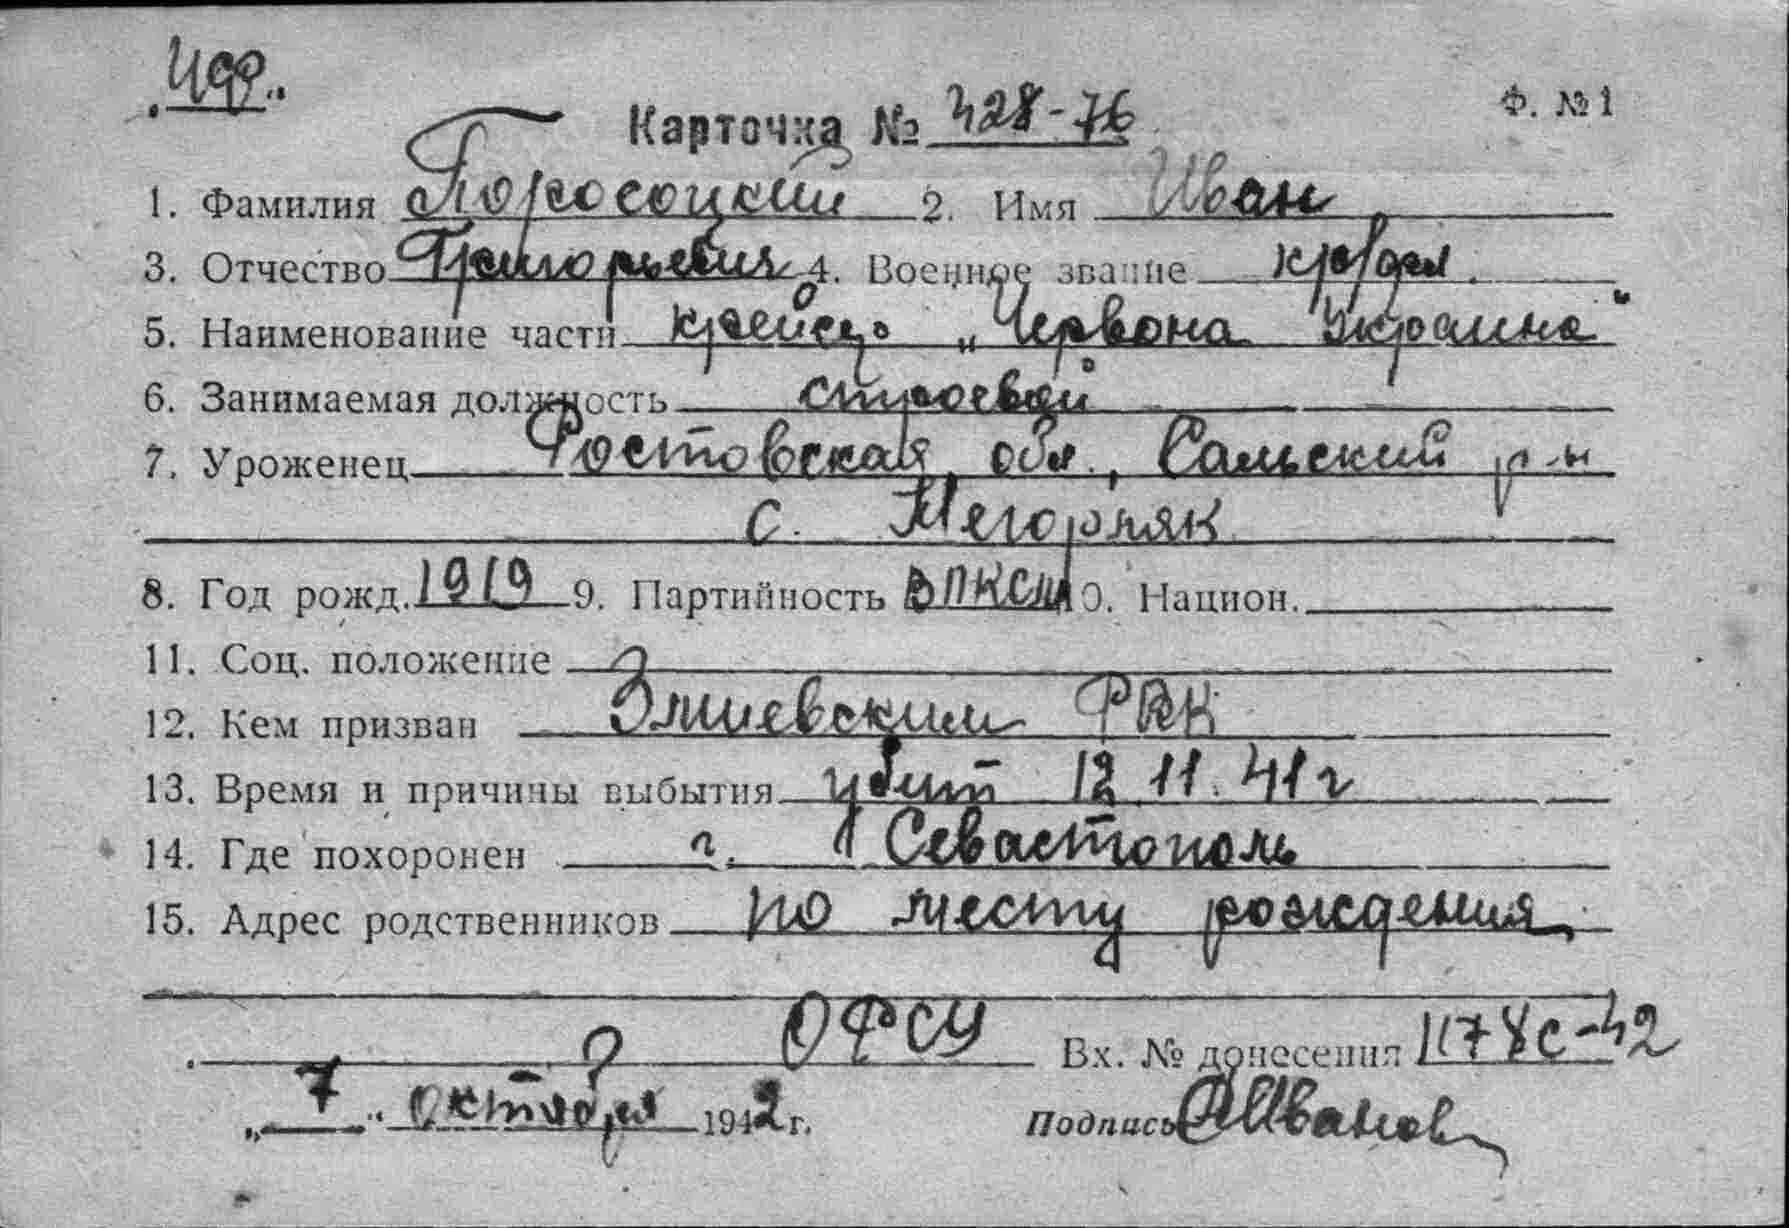 Ф. № 1
Карточка № 428-76
1. Фамилия Поросоцкий 2. Имя Иван
3. Отчество Григорьевич 4. Военное звание кр/фл.
5. Наименование части крейсер „Червона Украина"
6. Занимаемая должность строевой
7. Уроженец Ростовская обл., Сальский р-н
с.
8. Год рожд. 1919 9. Партийность ВЛКСМ 10. Национ.
11. Соц. положение
12. Кем призван Змиевским РВК
13. Время и причины выбытия убит 12.11.41 г
14. Где похоронен г. Севастополь
15. Адрес родственников по месту рождения
Вх. № донесения 1178с-42
„7" октября 1942 г. Подпись Иванов